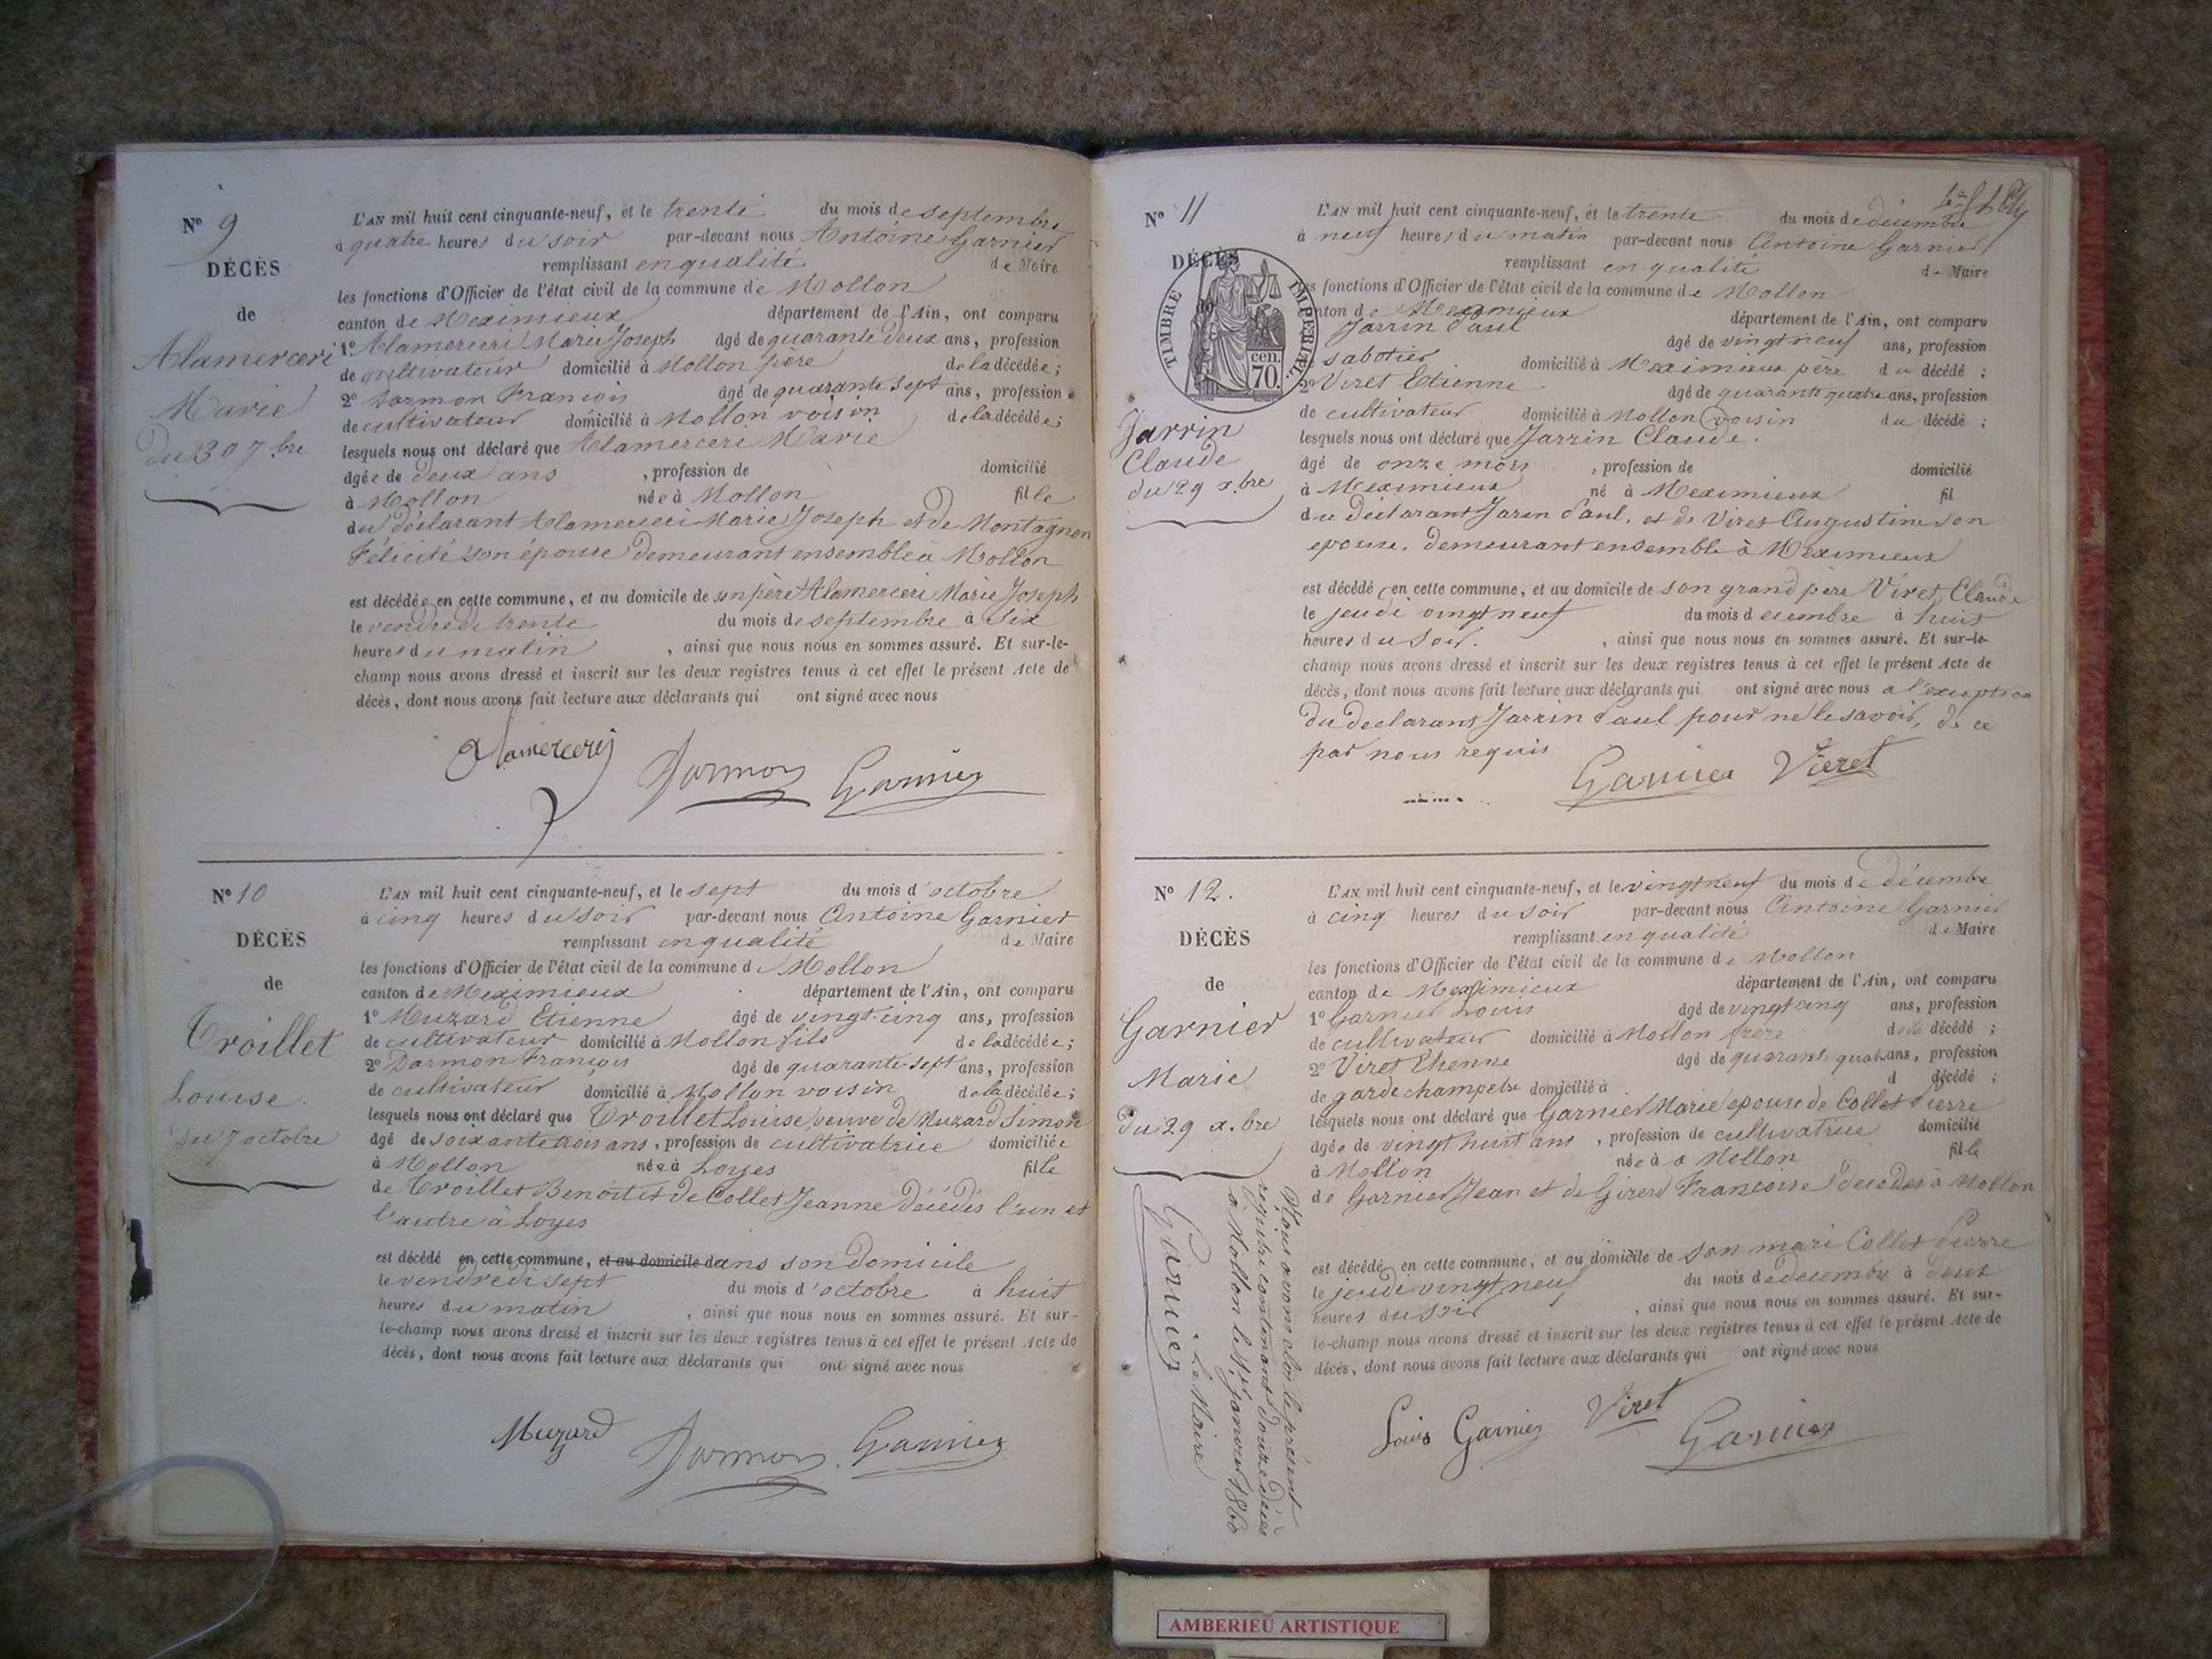 Nº 9
DÉCÈS
de
Alamerceri
Marie
du 30 7.bre
L'AN mil huit cent cinquante-neuf, et le trente du mois de septembre
à quatre heures du soir par-devant nous Antoine Garnier
remplissant en qualité de Maire
les fonctions d'Officier de l'état civil de la commune de Mollon
canton de Meximieux département de l'Ain, ont comparu
1º Alamerceri Marie Joseph âgé de quarante deux ans, profession
de cultivateur domicilié à Mollon père de la décédée;
2º Darmon François âgé de quarante sept ans, profession
de cultivateur domicilié à Mollon voisin de la décédée;
lesquels nous ont déclaré que Alamerceri Marie
âgée de deux ans , profession de domicilié
à Mollon née à Mollon fille
du déclarant Alamerceri Marie Joseph et de Montagnon
Félicité son épouse demeurant ensemble à Mollon
est décédée en cette commune, et au domicile de son père Alamerceri Marie Joseph
le vendredi trente du mois de septembre à six
heures du matin , ainsi que nous nous en sommes assuré. Et sur-le-
champ nous avons dressé et inscrit sur les deux registres tenus à cet effet le présent Acte de
décès, dont nous avons fait lecture aux déclarants qui ont signé avec nous
Alamercery Darmon Garnier
Nº 10
DÉCÈS
de
Troillet
Louise.
Du 7 octobre
L'AN mil huit cent cinquante-neuf, et le sept du mois d'octobre
à cinq heures du soir par-devant nous Antoine Garnier
remplissant en qualité de Maire
les fonctions d'Officier de l'état civil de la commune de Mollon
canton de Meximieux département de l'Ain, ont comparu
1º Muzard Etienne âgé de vingt-cinq ans, profession
de cultivateur domicilié à Mollon fils de la décédée;
2º Darmon François âgé de quarante-sept ans, profession
de cultivateur domicilié à Mollon voisin de la décédée;
lesquels nous ont déclaré que Troillet Louise, veuve de Muzard Simon
âgé de soixante trois ans, profession de cultivatrice domiciliée
à Mollon née à Loyes fille
de Troillet Benoit et de Collet Jeanne décédés l'un et
l'autre à Loyes
est décédé en cette commune, et au domicile dans son domicile
le vendredi sept du mois d'octobre à huit
heures du matin , ainsi que nous nous en sommes assuré. Et sur-
le-champ nous avons dressé et inscrit sur les deux registres tenus à cet effet le présent Acte de
décès, dont nous avons fait lecture aux déclarants qui ont signé avec nous
Muzard Darmon Garnier
Nº 11
DÉCÈS
de
TIMBRE IMPÉRIAL
cen.
70.
Jarrin
Claude
du 29 x.bre
L'AN mil huit cent cinquante-neuf, et le trente du mois de décembre
à neuf heures du matin par-devant nous Antoine Garnier
remplissant en qualité de Maire
les fonctions d'Officier de l'état civil de la commune de Mollon
canton de Meximieux département de l'Ain, ont comparu
Jarrin Paul âgé de vingt neuf ans, profession
sabotier domicilié à Meximieux père du décédé ;
2º Viret Etienne âgé de quarante quatre ans, profession
de cultivateur domicilié à Mollon voisin du décédé ;
lesquels nous ont déclaré que Jarrin Claude.
âgé de onze mois , profession de domicilié
à Meximieux né à Meximieux fil
du déclarant Jaren Paul, et de Viret Augustine son
epouse. demeurant ensemble à Meximieux
est décédé en cette commune, et au domicile de son grand père Viret Claude
le jeudi vingt neuf du mois decembre à huit
heures du soir. , ainsi que nous nous en sommes assuré. Et sur-le-
champ nous avons dressé et inscrit sur les deux registres tenus à cet effet le présent Acte de
décès, dont nous avons fait lecture aux déclarants qui ont signé avec nous a l'exception
du declarant Jarrin Paul pour ne le savoir, de ce
par nous requis
Garnier Vieret
Nº 12.
DÉCÈS
de
Garnier
Marie
du 29 x.bre
L'AN mil huit cent cinquante-neuf, et le vingt neuf du mois de décembre
à cinq heures du soir par-devant nous Antoine Garnier
remplissant en qualité de Maire
les fonctions d'Officier de l'état civil de la commune de Mollon
canton de Meximieux département de l'Ain, ont comparu
1º Garnier Louis âgé de vingt cinq ans, profession
de cultivateur domicilié à Mollon frère de la décédé ;
2º Viret Etienne âgé de quarant quat ans, profession
de garde champetre domicilié à d décédé ;
lesquels nous ont déclaré que Garnier Marie epouse de Collet Pierre
âgée de vingt huit ans , profession de cultivatrice domicilié
à Mollon née à a Mollon fille
de Garnier Jean et de Girerd Françoise decedés à Mollon
est décédé en cette commune, et au domicile de son mari Collet Pierre
le jeudi vingt neuf du mois de decembre à deux
heures du soir , ainsi que nous nous en sommes assuré. Et sur-
le-champ nous avons dressé et inscrit sur les deux registres tenus à cet effet le présent Acte de
décès, dont nous avons fait lecture aux déclarants qui ont signé avec nous
Louis Garnier Viret Garnier
Nous avons clos le présent
registre contenant douze décès
à Mollon le 1er janvier 1860
Le Maire
Garnier
AMBERIEU ARTISTIQUE